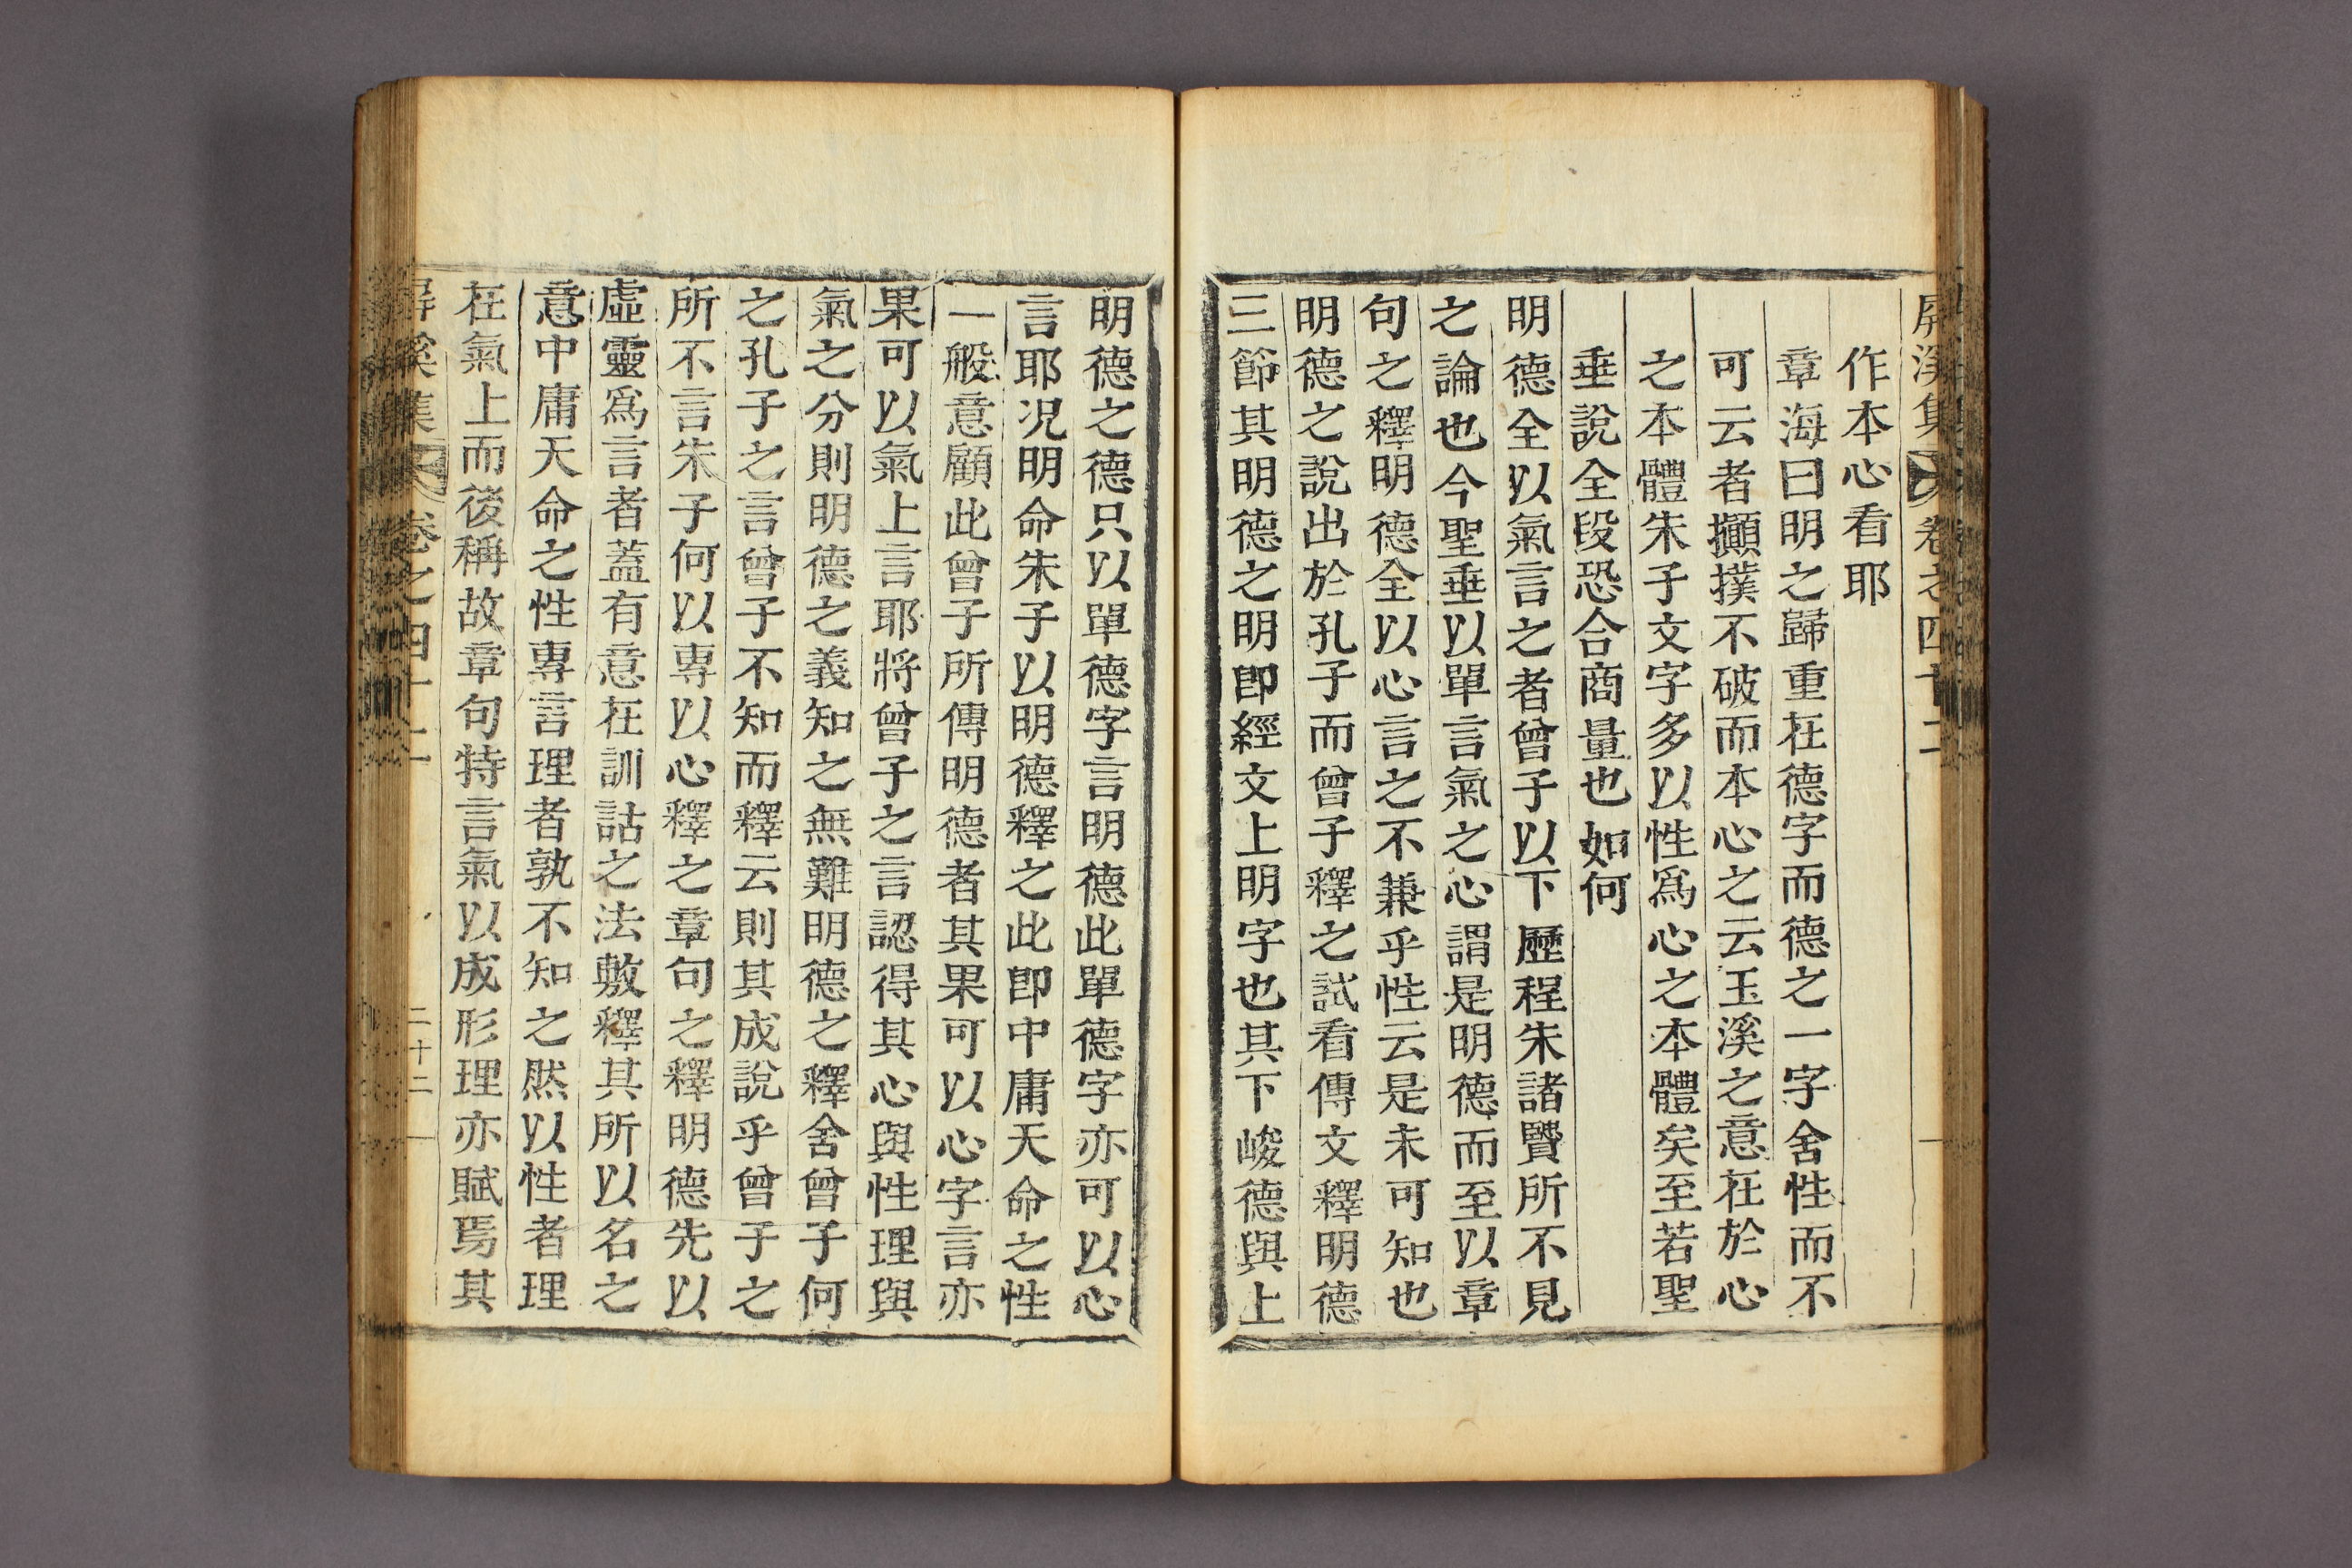 屏溪集 卷之四十二
作本心看耶
章海曰明之歸重在德字而德之一字舍性而不
可云者攧撲不破而本心之云玉溪之意在於心
之本體朱子文字多以性爲心之本體矣至若聖
垂說全段恐合商量也如何
明德全以氣言之者曾子以下歷程朱諸賢所不見
之論也今聖垂以單言氣之心謂是明德而至以章
句之釋明德全以心言之不兼乎性云是未可知也
明德之說出於孔子而曾子釋之試看傳文釋明德
三節其明德之明卽經文上明字也其下峻德與上
明德之德只以單德字言明德此單德字亦可以心
言耶况明命朱子以明德釋之此卽中庸天命之性
一般意顧此曾子所傳明德者其果可以心字言亦
果可以氣上言耶將曾子之言認得其心與性理與
氣之分則明德之義知之無難明德之釋舍曾子何
之孔子之言曾子不知而釋云則其成說乎曾子之
所不言朱子何以專以心釋之章句之釋明德先以
虛靈爲言者蓋有意在訓詁之法敷釋其所以名之
意中庸天命之性專言理者孰不知之然以性者理
在氣上而後稱故章句特言氣以成形理亦賦焉其
屏溪集 卷之四十二 二十二